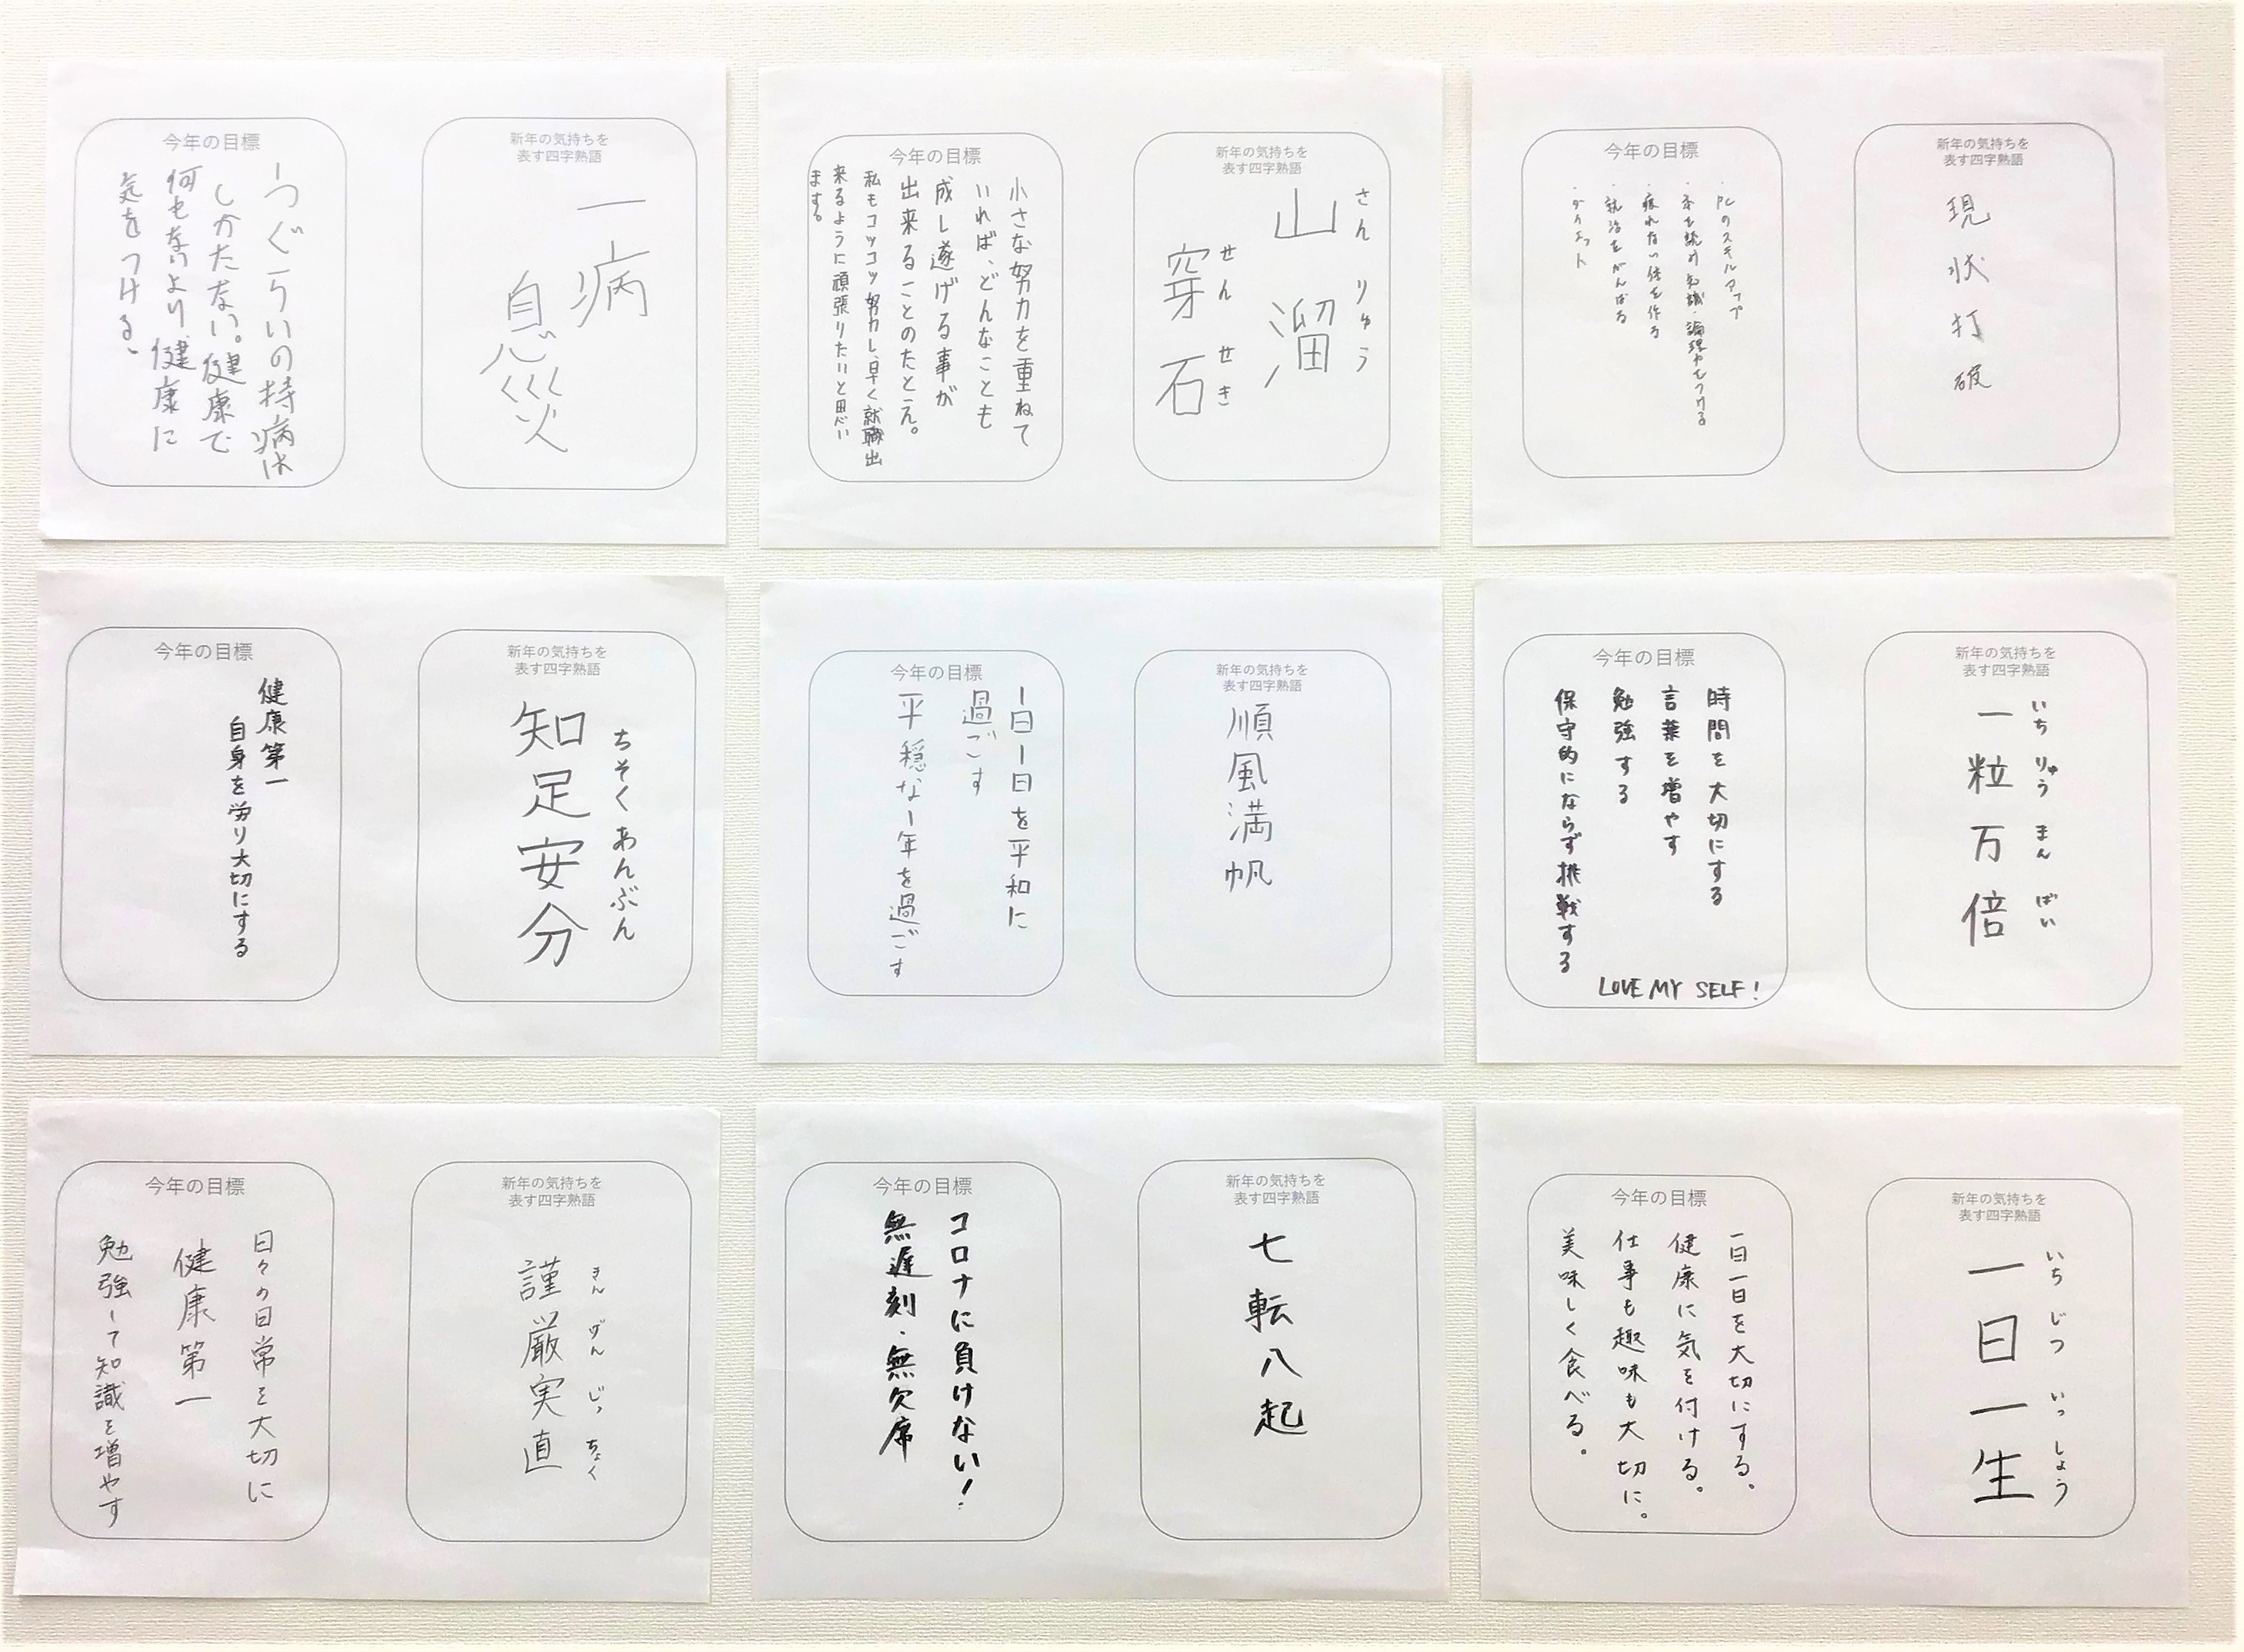 新年の気持ちを
表す四字熟語
現状打破
今年の目標
・PCのスキルアップ
・本を読み知識・論理
・疲れない体を作る
・就活をがんばる
・ダイエット
新年の気持ちを
表す四字熟語
さんりゅう
山溜
せんせき
穿石
今年の目標
小さな努力を重ねて
いれば、どんなことも
成し遂げる事が
出来ることのたとえ。
私もコツコツ努力し、早く就職出
来るように頑張りたいと思い
ます。
新年の気持ちを
表す四字熟語
一病
息災
今年の目標
一つぐらいの持病は
しかたない。健康で
何もないより、健康に
気をつける、
新年の気持ちを
表す四字熟語
いちりゅうまんばい
一粒万倍
今年の目標
時間を大切にする
言葉を増やす
勉強する
保守的にならず挑戦する
LOVE MY SELF!
新年の気持ちを
表す四字熟語
順風満帆
今年の目標
一日一日を平和に
過ごす
平穏な一年を過ごす
新年の気持ちを
表す四字熟語
ちそくあんぶん
知足安分
今年の目標
健康第一
自身を労り大切にする
新年の気持ちを
表す四字熟語
いちじついっしょう
一日一生
今年の目標
一日一日を大切にする。
健康に気を付ける。
仕事も趣味も大切に。
美味しく食べる。
新年の気持ちを
表す四字熟語
七転八起
今年の目標
コロナに負けない!
無遅刻・無欠席
新年の気持ちを
表す四字熟語
きんげんじっちょく
謹厳実直
今年の目標
日々の日常を大切に
健康第一
勉強して知識を増やす